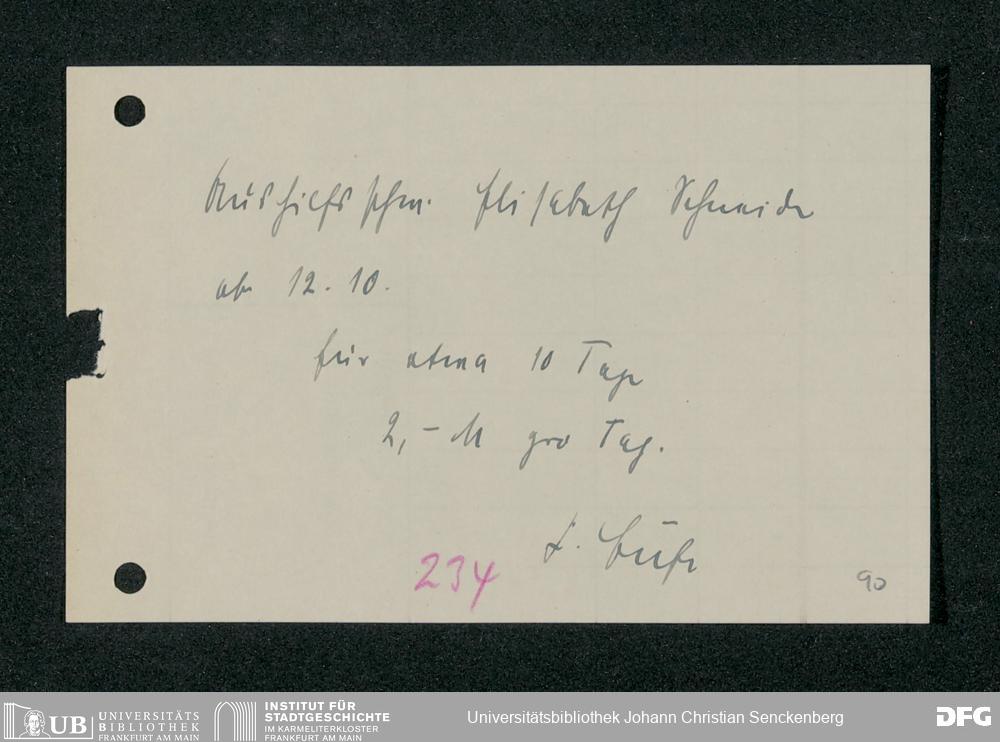 Aushilfsschw. Elisabeth Schneider
ab 12.10.
für etwa 10 Tage
2,- M pro Tag.
234
90
UB UNIVERSITÄTS
BIBLIOTHEK
FRANKFURT AM MAIN
INSTITUT FÜR
STADTGESCHICHTE
IM KARMELITERKLOSTER
FRANKFURT AM MAIN
Universitätsbibliothek Johann Christian Senckenberg
DFG